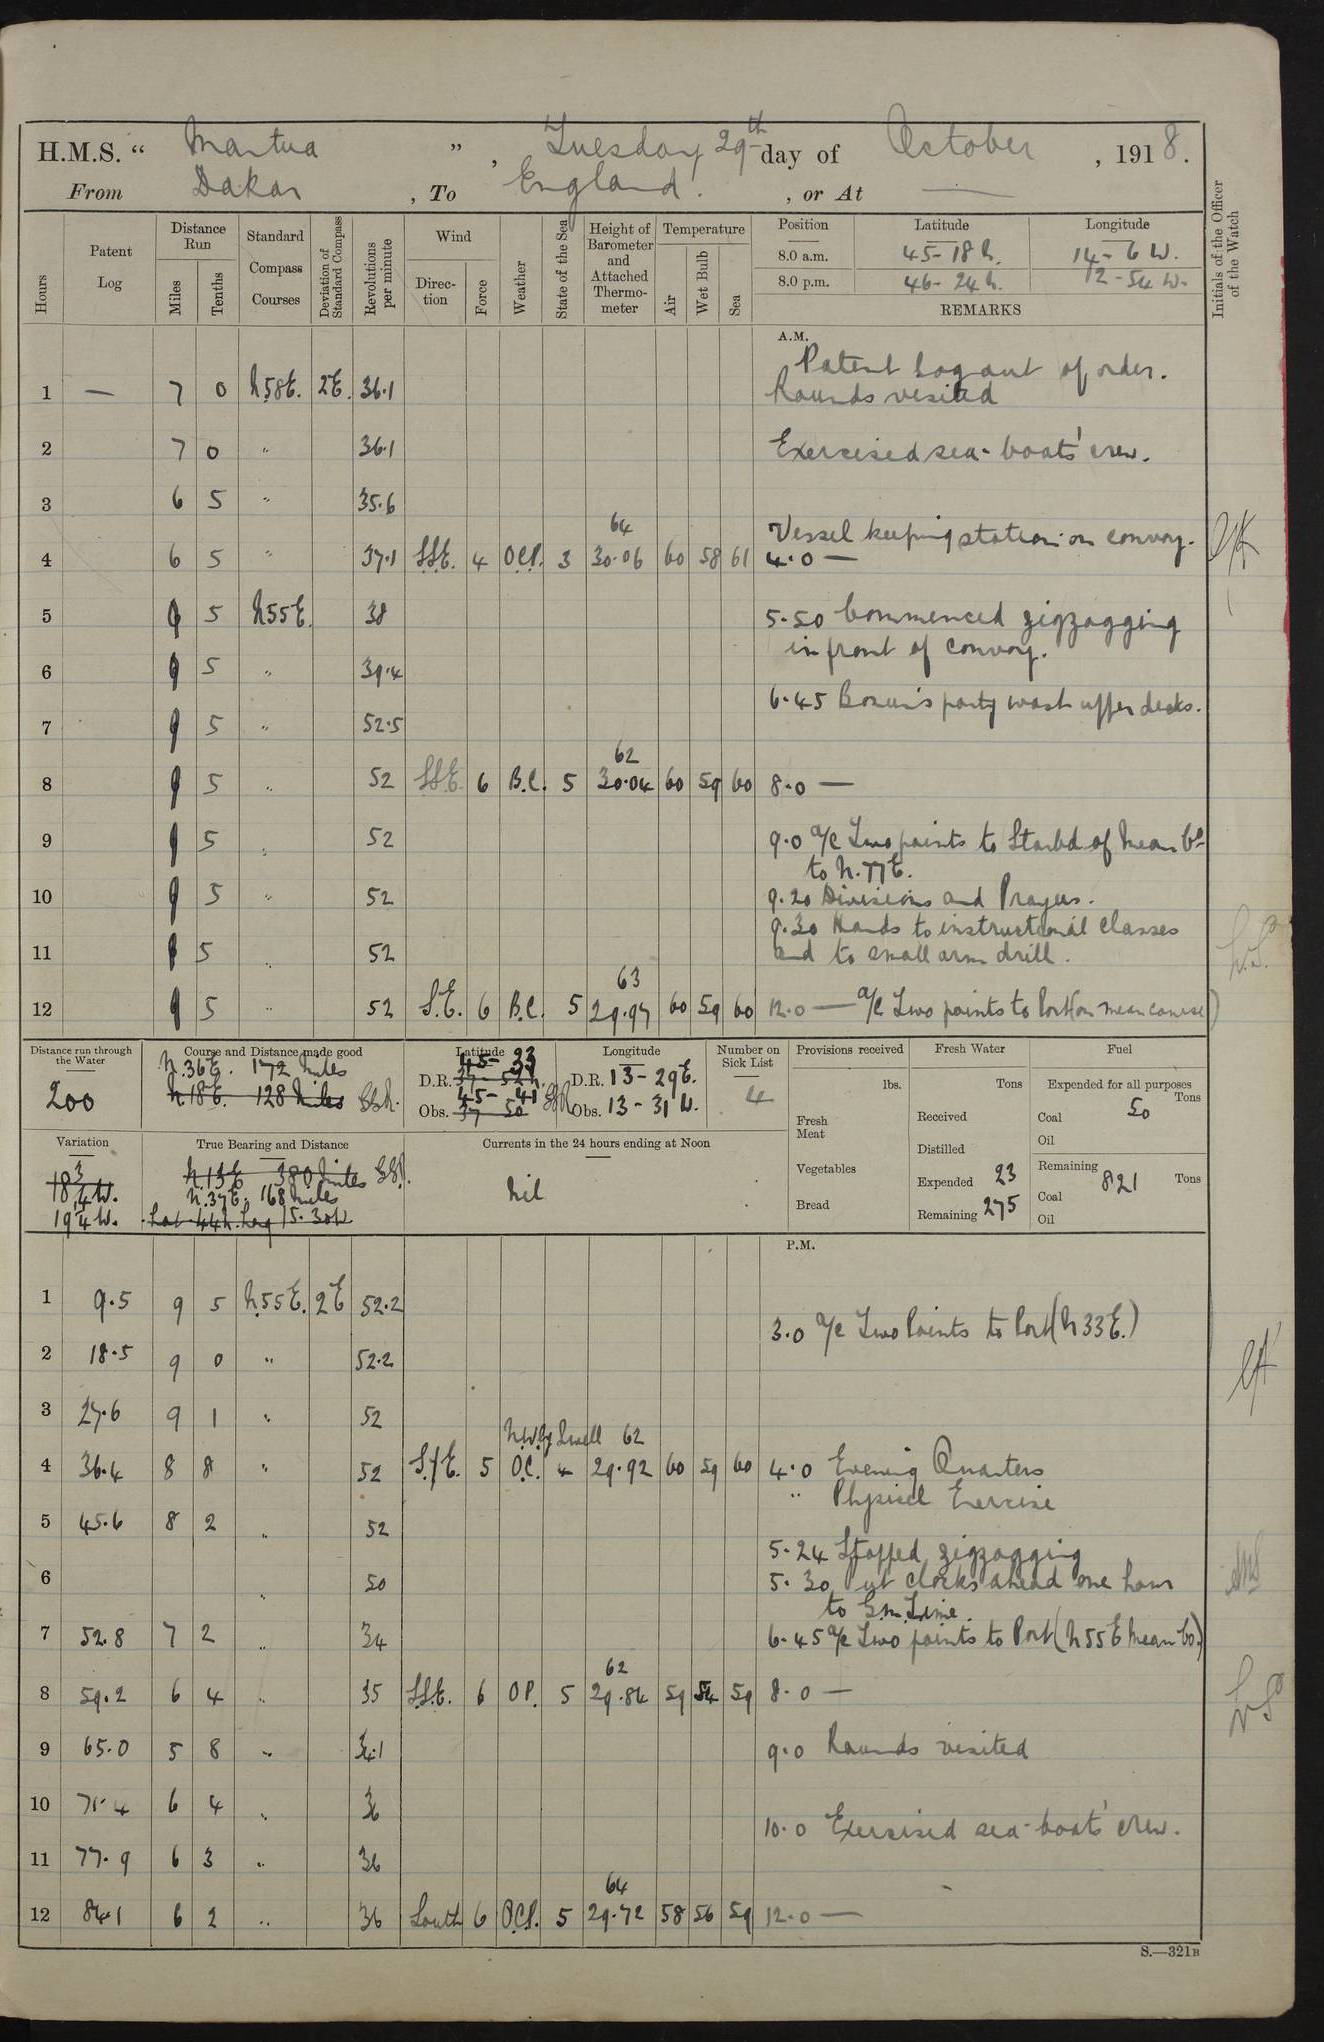 H.M.S. " Mantua " , Tuesday 29th day of October , 1918.
From Dakar , To England . , or At —
Hours
Patent Log
Distance Run
Miles
Tenths
Standard Compass Courses
Deviation of Standard Compass
Revolutions per minute
Wind
Direction
Force
Weather
State of the Sea
Height of Barometer and Attached Thermometer
Temperature
Air
Wet Bulb
Sea
Position Latitude Longitude
8.0 a.m. 45-18 N. 14-6 W.
8.0 p.m. 46-24 N. 12-54 W.
REMARKS
Initials of the Officer of the Watch
A.M.
Patent Log out of order.
1 — 7 0 N58E. 2E. 36.1 Rounds visited
2 7 0 " 36.1 Exercised sea-boats' crew.
3 6 5 " 35.6
64
Vessel keeping station on convoy.
4 6 5 " 37.1 S.S.E. 4 O.C.P. 3 30.06 60 58 61 4.0 —
5 9 5 N55E. 38 5.50 Commenced zigzagging
in front of convoy.
6 9 5 " 39.4
6.45 Bosun's party wash upper decks.
7 9 5 " 52.5
62
8 9 5 " 52 S.S.E. 6 B.C. 5 30.04 60 59 60 8.0 —
9 9 5 " 52 9.0 a/c Two points to Starbd. of Mean Co
to N.77E.
10 9 5 " 52 9.20 Divisions and Prayers.
9.30 Hands to instructional classes
11 5 " 52 and to small arm drill.
63
12 9 5 " 52 S.E. 6 B.C. 5 29.97 60 59 60 12.0 — a/c Two points to Port (on mean course)
Distance run through the Water
200
Course and Distance made good
N.36E. 172 Miles
N18E. 128 Miles
Latitude
45-33
D.R. 37-52 N.
45-41
Obs. 37 50
Longitude
D.R. 13-29E.
Obs. 13-31 W.
Number on Sick List
4
Provisions received
lbs.
Fresh Meat
Vegetables
Bread
Fresh Water
Tons
Received
Distilled
Expended 23
Remaining 275
Fuel
Expended for all purposes
Tons
Coal 50
Oil
Remaining
Coal 821 Tons
Oil
Variation
19¼ W.
True Bearing and Distance
N.13E 380 Miles
N.37E. 168 Miles
Lat 44N. Long 15.30W
Currents in the 24 hours ending at Noon
Nil
P.M.
1 9.5 9 5 N55E. 2E 52.2
3.0 a/c Two Points to Port (N33E.)
2 18.5 9 0 " 52.2
3 27.6 9 1 " 52
N.W.ly Swell 62
4 36.4 8 8 " 52 S.yE. 5 O.C. 4 29.92 60 59 60 4.0 Evening Quarters
" Physical Exercise
5 45.6 8 2 " 52
5.24 Stopped zigzagging
6 " 50 5.30 Put clocks ahead one hour
to G.M. Time.
7 52.8 7 2 " 34 6.45 a/c Two points to Port (N55E Mean Co.)
62
8 59.2 6 4 " 35 S.S.E. 6 OP. 5 29.84 59 54 59 8.0 —
9 65.0 5 8 " 34.1 9.0 Rounds visited
10 71.4 6 4 " 36
10.0 Exercised sea-boats' crew.
11 77.9 6 3 " 36
64
12 84.1 6 2 " 36 South 6 O.C.P. 5 29.72 58 56 59 12.0 —
S.—321B